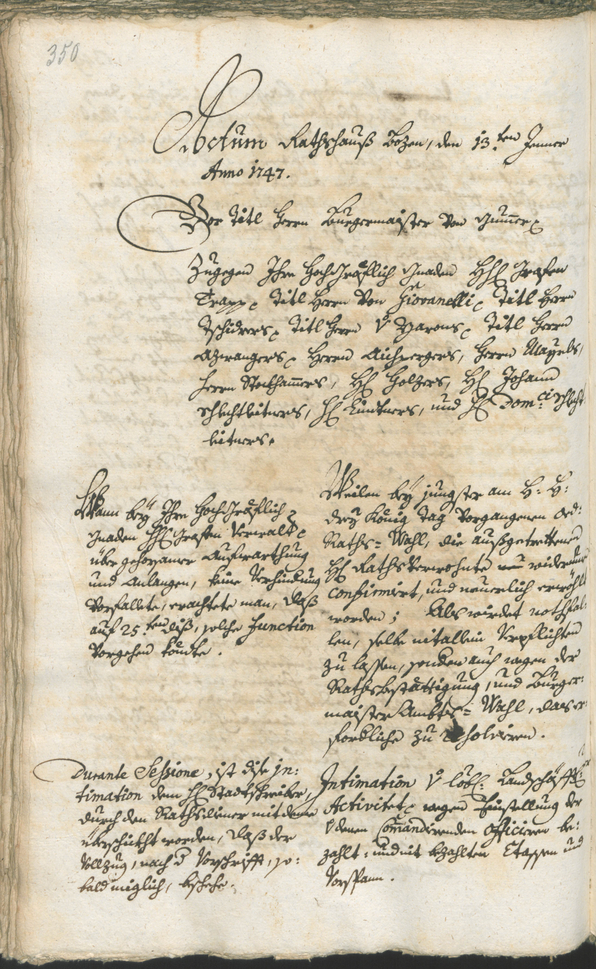 350
Actum Rathshauß Bozen, den 13.ten Jenner
Anno 1747.
Vor Titl Herrn Burgermaister von
Zugegen Ihro Hochgräflich Gnaden Grafen
Trapp, Titl Herrn von Giovanelli, Titl Herrn
Titl Herrn Titl Herrn
Herrn Aichpergers, Herrn
Herrn Stockhamers, Hl Holzers, Hl Johann
und Hl Dom.ci Schlecht
leitners.
Wann bey Ihro Hochgräflich
Gnaden Grafen
über gehorsame Aufwarthung
und Anlangen, keine Verhindung
vorfallete, erachtete man, daß
auf 25.ten diß, solche Function
vorgehen könte.
Weilen bey jüngster am H: H:
drey König Tag vorgangenen
Raths-Wahl, die außgetrettene
Hl Rathsverwohnte widerumb
confirmiert, und neuerlich erwöhlt
worden; Als würdet
len, selbe nit allein Verpflichten
zu lassen, sondern auch wegen der
Rathsbestättigung, und Burger-
maister Ambts-Wahl, das er-
forderliche zu
Durante Sessione, ist dise In-
timation dem Hl Stattschreiber,
durch den Rathsdiener mit deme
überschickht worden, daß der
Vollzug, nach d Vorschrifft, so-
bald möglich, beschehe.
Intimation Löbl: Landschäfft:
Activitet, wegen Einstellung der
denen Comandirenden Officiern be-
zahlt: und nit bezahlten Etappen und
Vorspann.